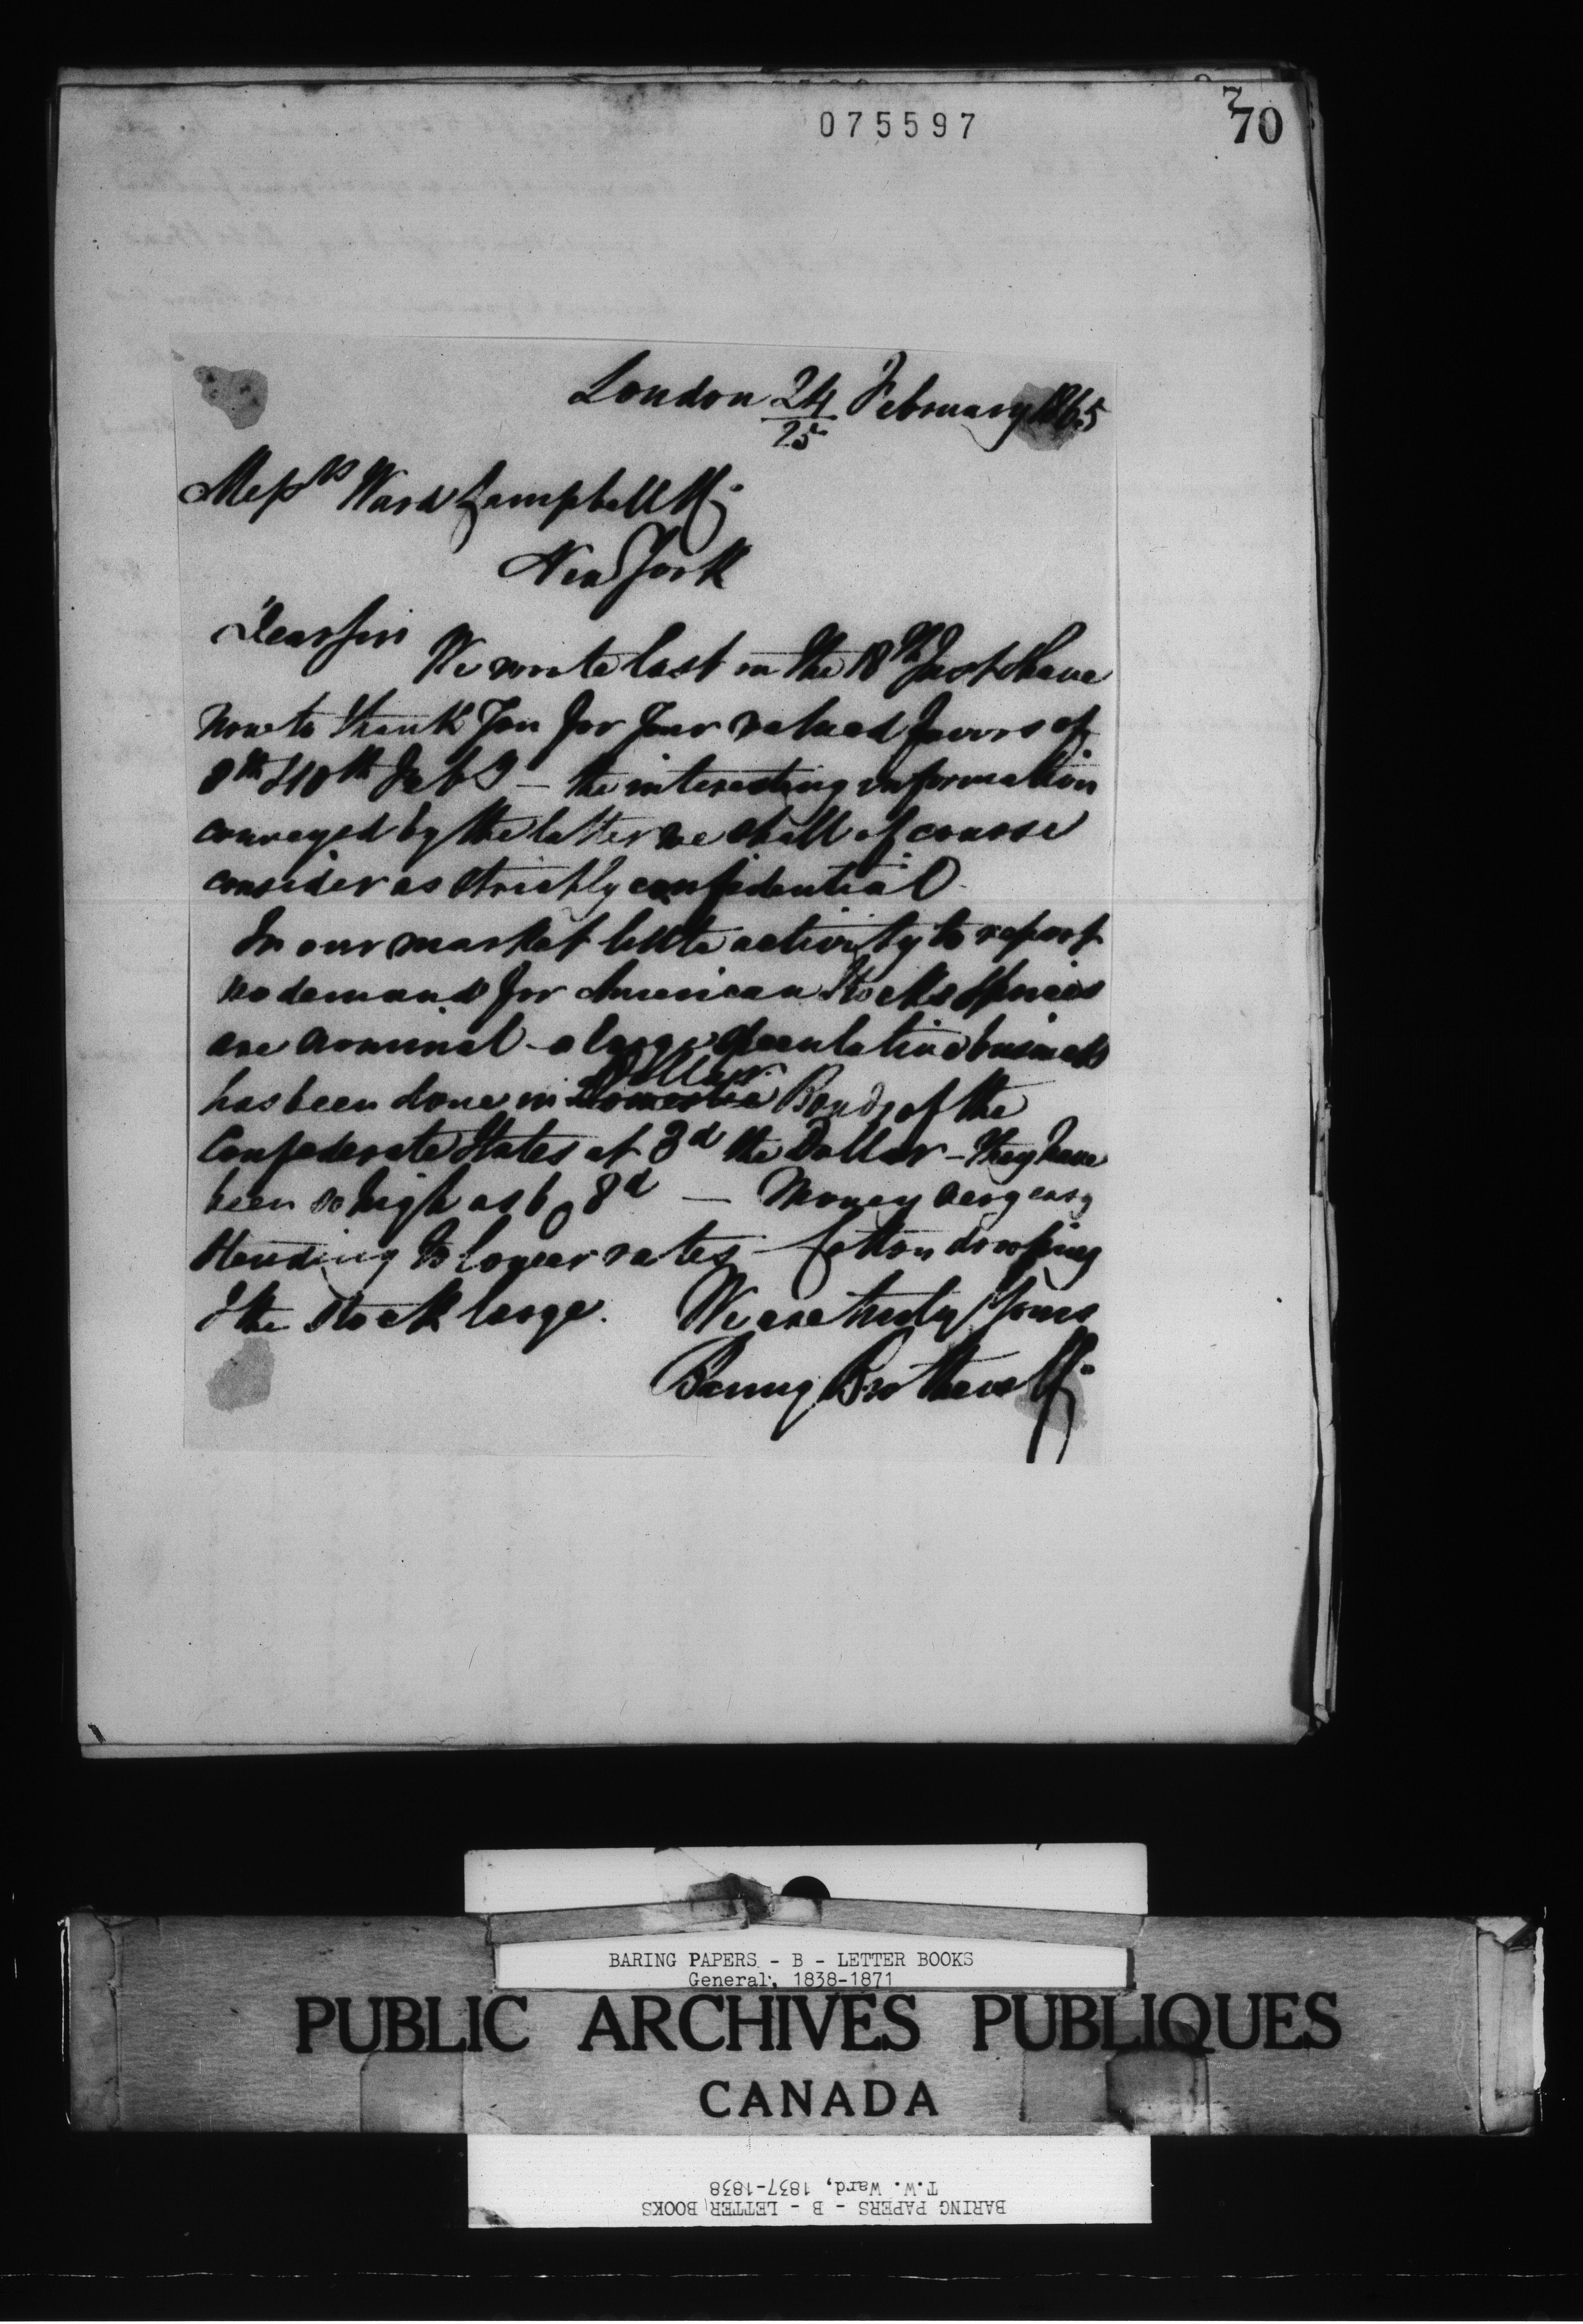 075597
7
70
London 24/25 February 1865
Messrs Ward Campbell & Co
New York
Dear Sirs
We wrote last on the 18th Inst & have
now to thank you for your valued favors of
8th & 10th Feby – the interesting information
conveyed by the latter we shall of course
consider as strictly confidential
In our market little activity to report
no demand for American Stocks & prices
are nominal – a large speculative business
has been done in Domestic Dollar Bonds of the
Confederate States at 3d the Dollar – they have
been so high as 8d — Money very easy
& tending to lower rates – Cotton drooping
& the stock large. We are truly Yours
Baring Brothers & Co
BARING PAPERS - B - LETTER BOOKS
General, 1838-1871
PUBLIC ARCHIVES PUBLIQUES
CANADA
BARING PAPERS - B - LETTER BOOKS
T.W. Ward, 1837-1838